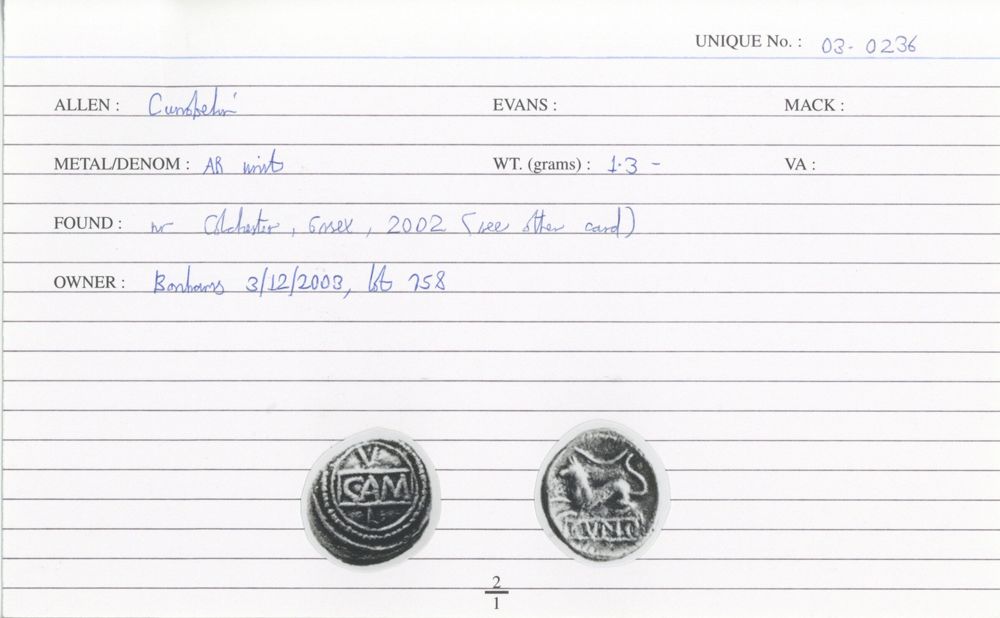 UNIQUE No. : 03-0236
ALLEN : Cunobelin EVANS : MACK :
METAL/DENOM : AR unit WT. (grams) : 1.3 - VA :
FOUND : nr Colchester, Essex, 2002 (see other card)
OWNER : Bonhams 3/12/2003, lot 758
V
CAM
CVNO
2
1